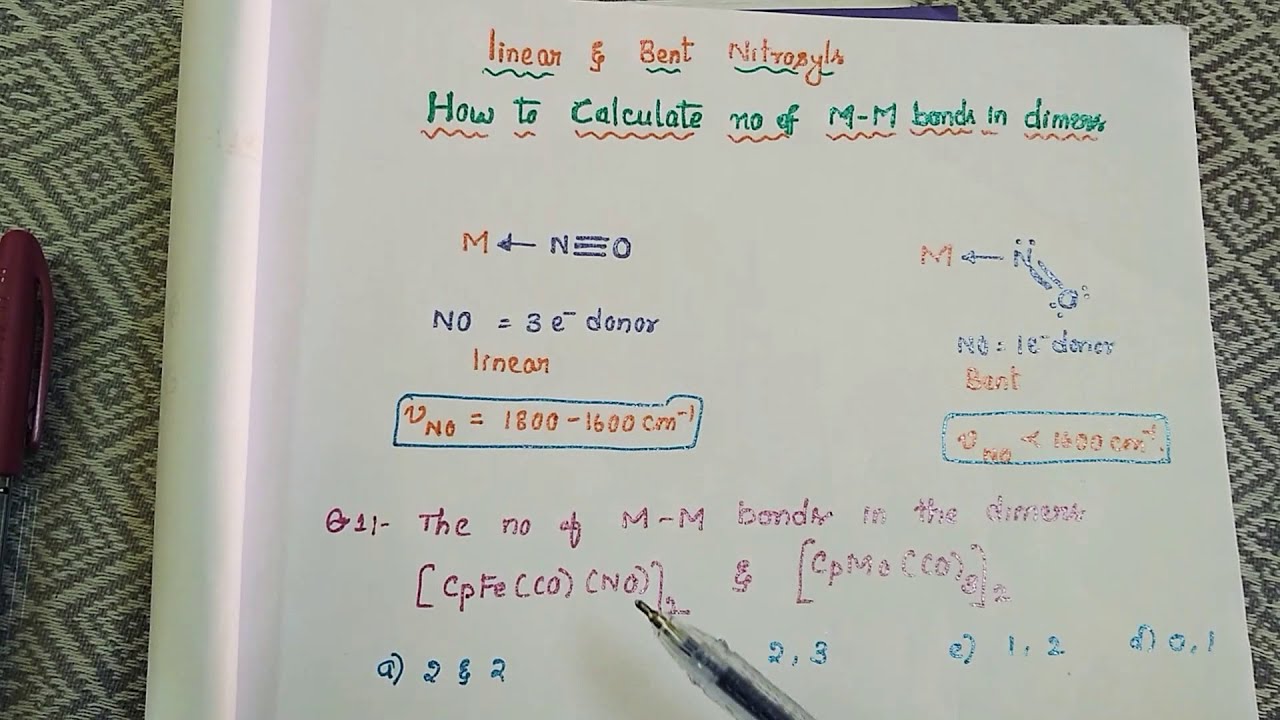 linear & Bent Nitrosyls
How to Calculate no of M-M bonds in dimers
M ← N≡O
NO = 3e⁻ donor
linear
νNO = 1800-1600 cm⁻¹
M ← N̈=O
NO = 1e⁻ donor
Bent
νNO < 1600 cm⁻¹
Q1- The no of M-M bonds in the dimers
[CpFe(CO)(NO)]₂ & [CpMo(CO)]₂
a) 2 & 2 2, 3 c) 1, 2 d) 0, 1